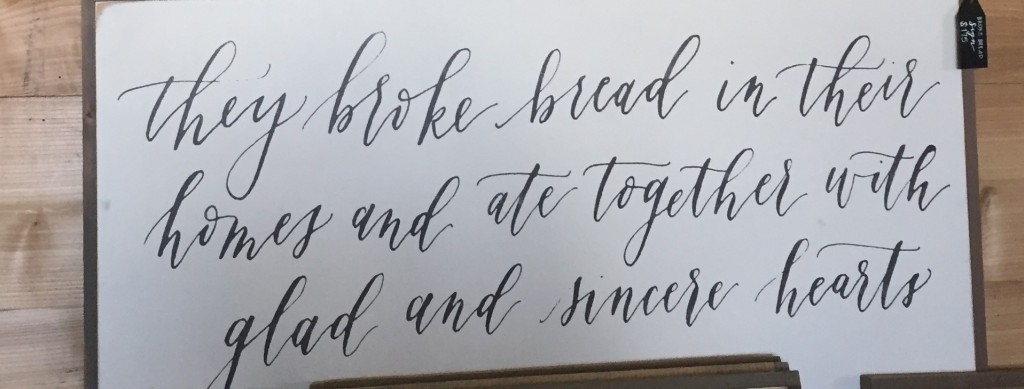 they broke bread in their
homes and ate together with
glad and sincere hearts
BROKE BREAD
sign
$175